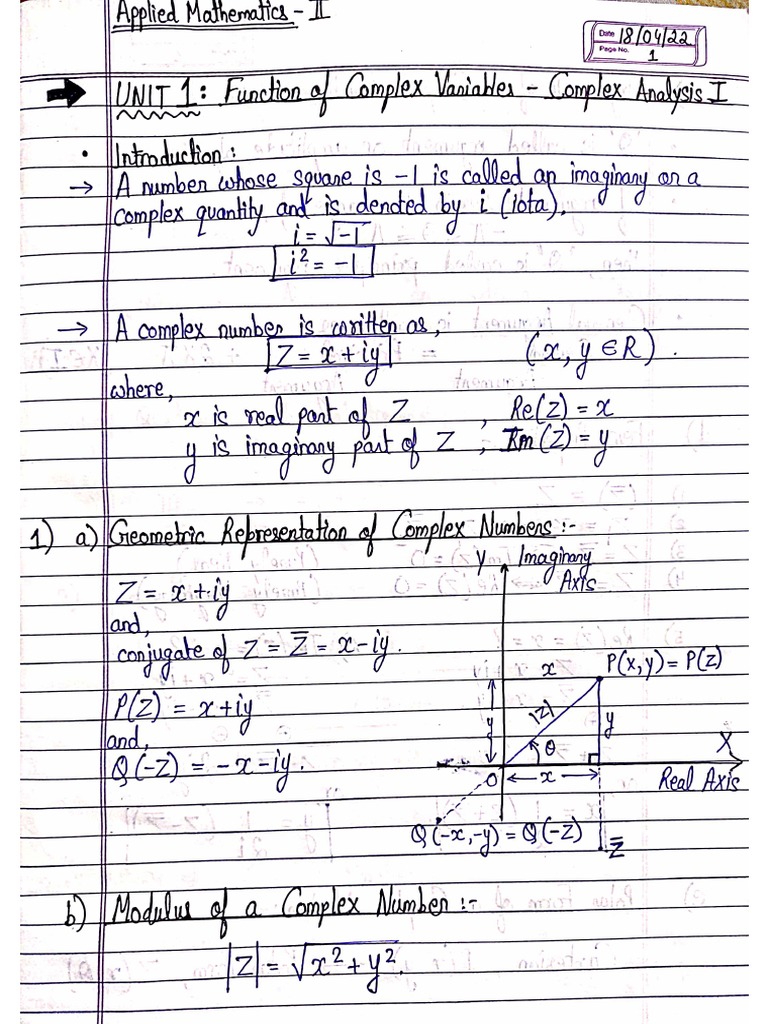 Applied Mathematics - II
Date 18/04/22
Page No. 1
UNIT 1: Function of Complex Variables - Complex Analysis I
• Introduction:
→ A number whose square is -1 is called an imaginary or a
complex quantity and is denoted by i (iota).
i = √-1
i² = -1
→ A complex number is written as,
Z = x + iy (x, y ∈ R).
where,
x is real part of Z , Re(Z) = x
y is imaginary part of Z , Im(Z) = y
1) a) Geometric Representation of Complex Numbers :-
Z = x + iy
and,
conjugate of Z = Z̅ = x - iy.
P(Z) = x + iy
and,
Q(-Z) = -x - iy.
Y Imaginary
Axis
x P(x, y) = P(Z)
y |Z| y
θ X
O x Real Axis
Q(-x, -y) = Q(-Z) Z̅
b) Modulus of a Complex Number :-
|Z| = √x² + y².